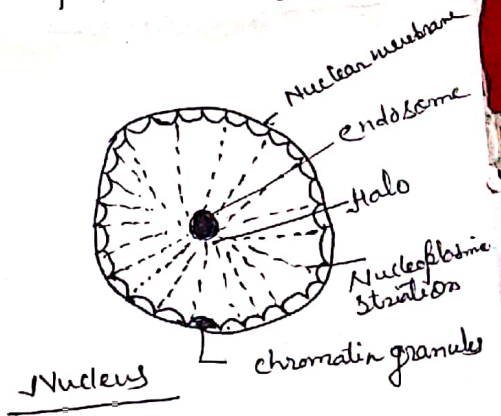 Nuclear membrane
endosome
Halo
Nucleoplasmic
striations
chromatin granules
Nucleus